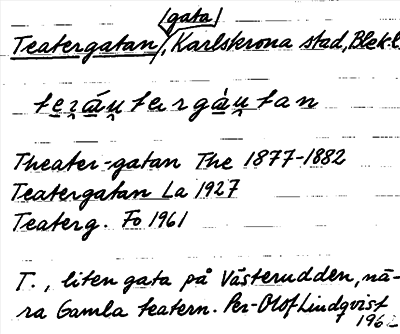 /gata/
Teatergatan/, Karlskrona stad, Blek. l.
Theater-gatan The 1877-1882
Teatergatan La 1927
Teaterg. Fo 1961
T., liten gata på Västerudden, nä-
ra Gamla teatern. Per-Olof Lindqvist